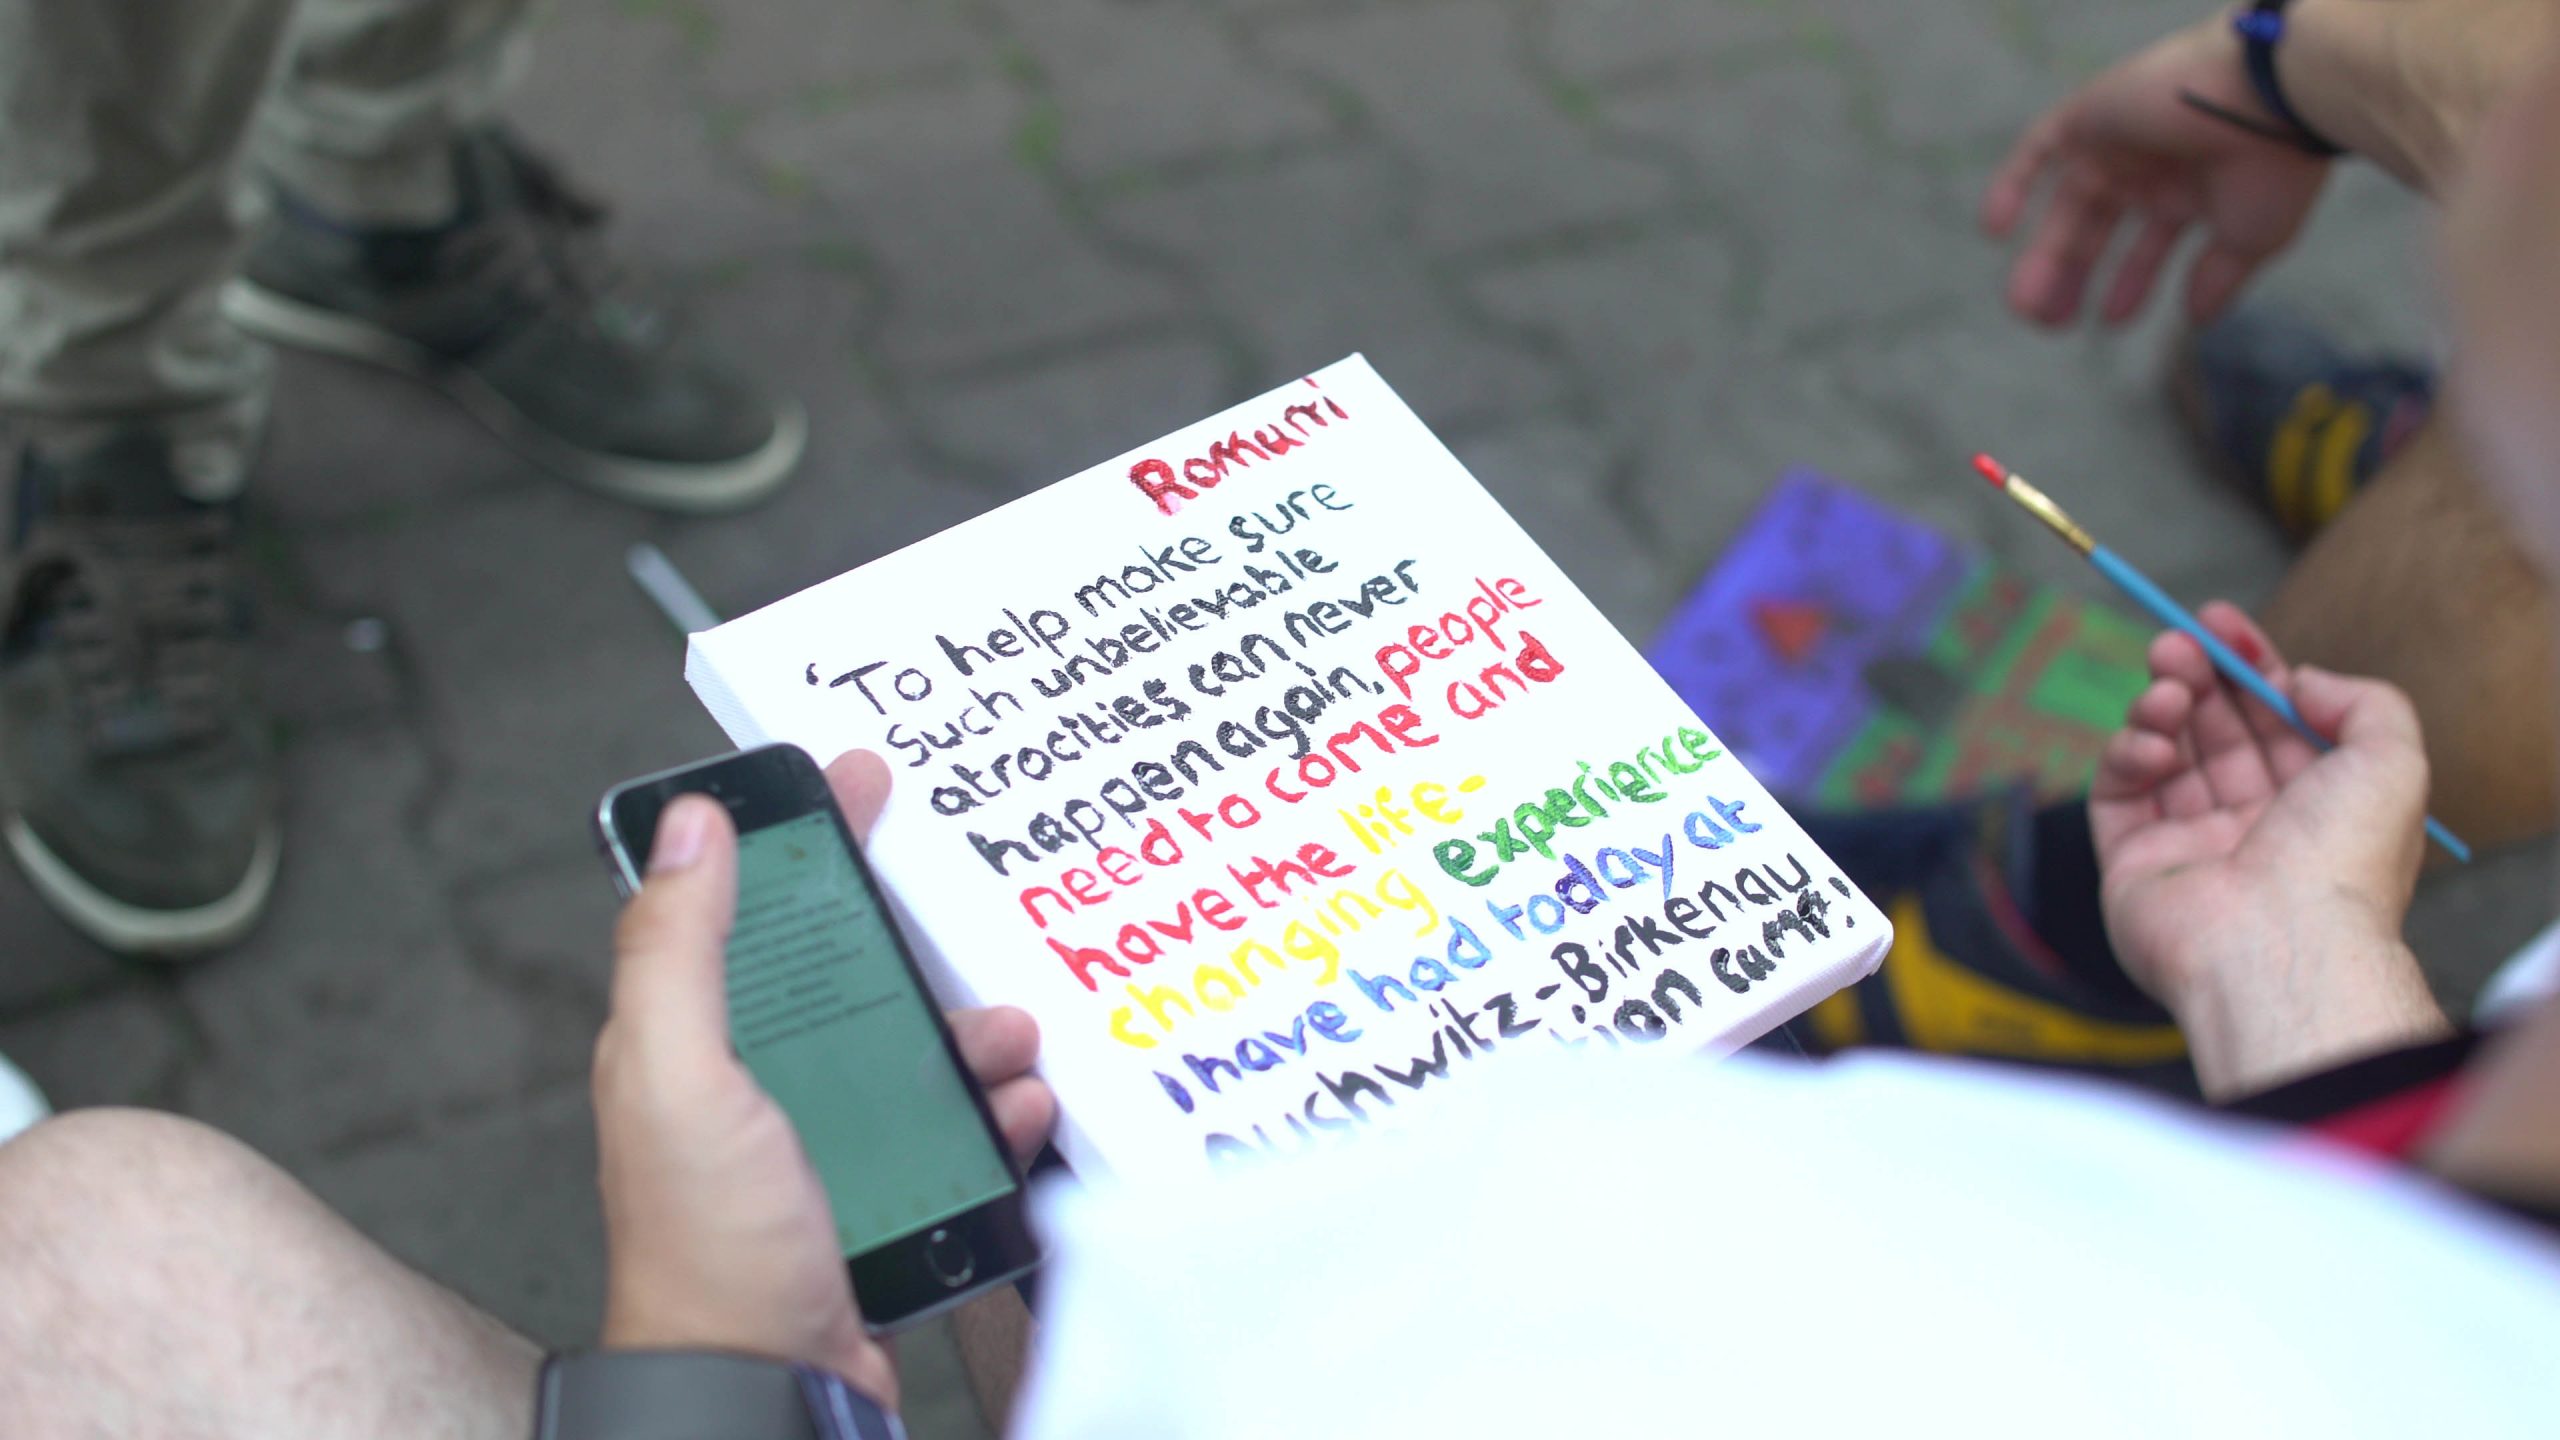 Romani
'To help make sure
such unbelievable
atrocities can never
happen again, people
need to come and
have the life-
changing experience
I have had today at
Aushwitz-Birkenau
camp.'